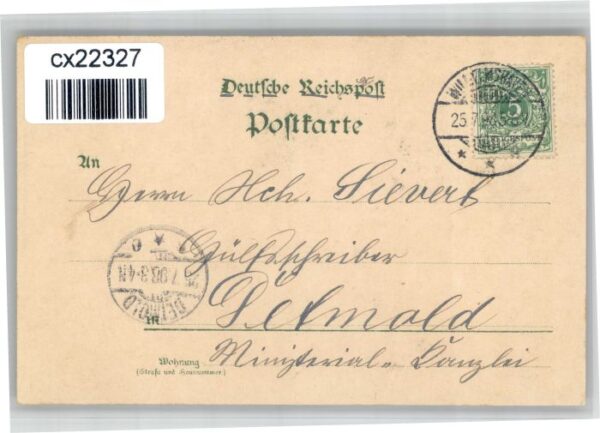 cx22327
Deutsche Reichspost
Postkarte
An
Herrn Hch. Sievert
Hülfsschreiber
in Detmold
Ministerial-Kanzlei
Wohnung
(Straße und Hausnummer)
5
25 7
DETMOLD
7.98.3-4N